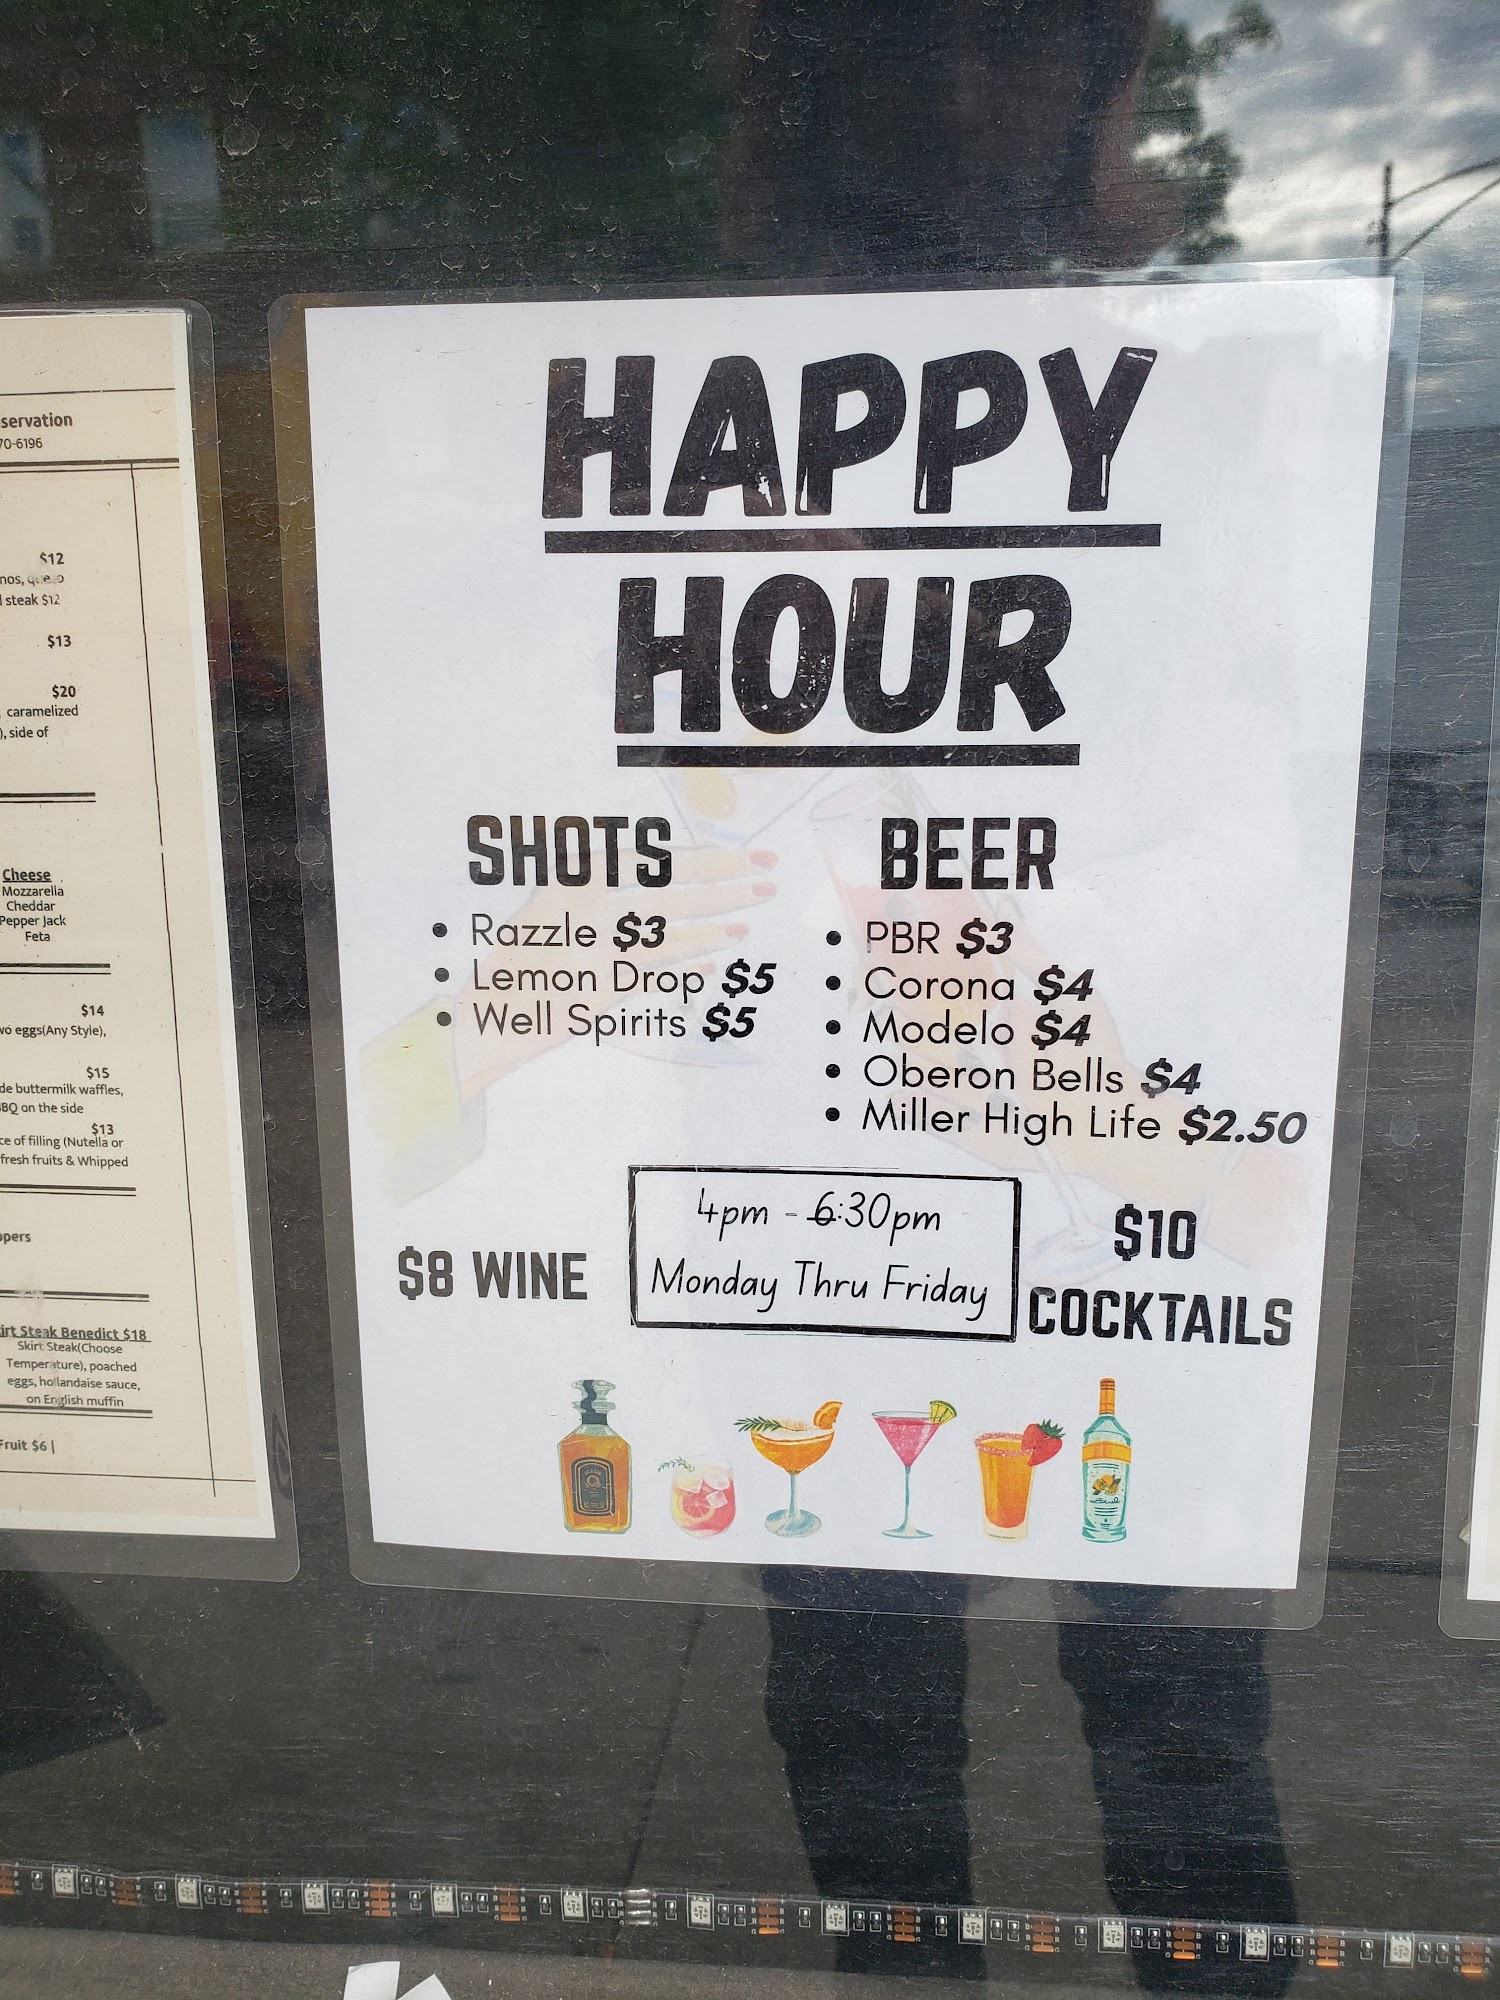 servation
70-6196
$12
nos, queso
steak $12
$13
$20
caramelized
), side of
Cheese
Mozzarella
Cheddar
Pepper Jack
Feta
$14
wo eggs(Any Style),
$15
de buttermilk waffles,
BBQ on the side
$13
ce of filling (Nutella or
fresh fruits & Whipped
ppers
irt Steak Benedict $18
Skirt Steak(Choose
Temperature), poached
eggs, hollandaise sauce,
on English muffin
Fruit $6 |
HAPPY
HOUR
SHOTS
• Razzle $3
• Lemon Drop $5
• Well Spirits $5
BEER
• PBR $3
• Corona $4
• Modelo $4
• Oberon Bells $4
• Miller High Life $2.50
$8 WINE
4pm - 6:30pm
Monday Thru Friday
$10
COCKTAILS